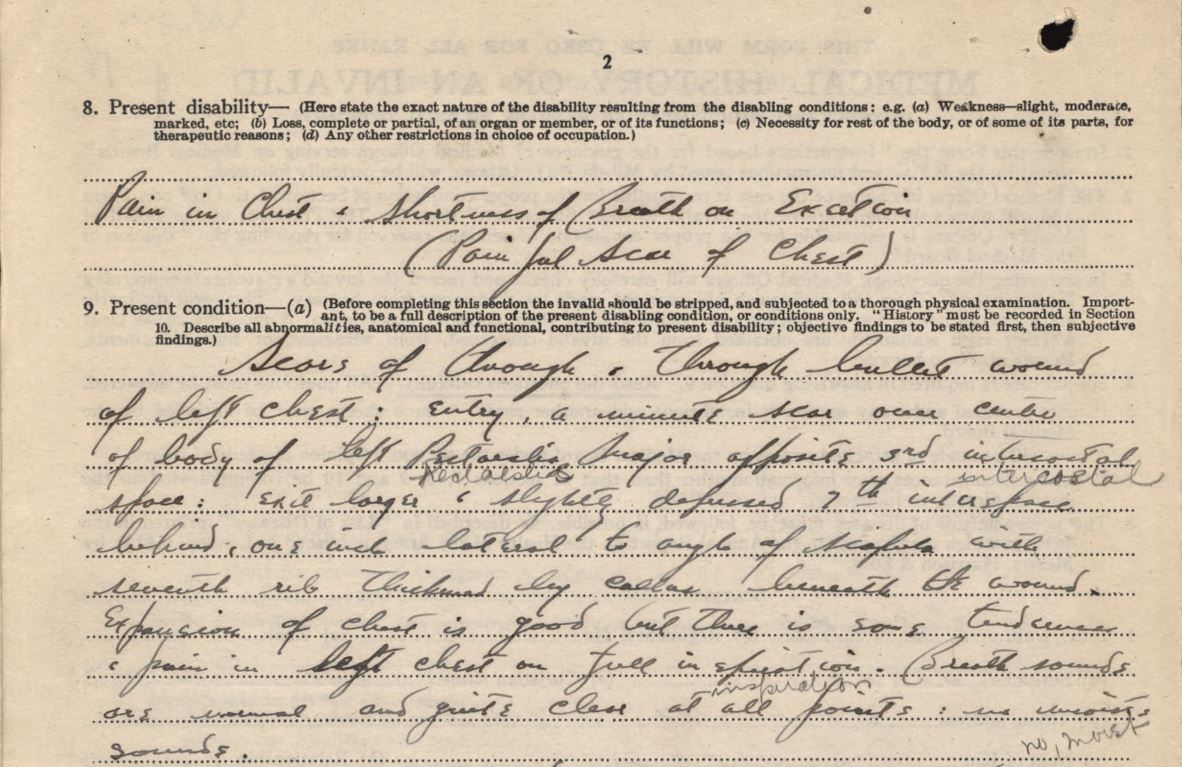 2
8. Present disability— (Here state the exact nature of the disability resulting from the disabling conditions: e.g. (a) Weakness—slight, moderate,
marked, etc; (b) Loss, complete or partial, of an organ or member, or of its functions; (c) Necessity for rest of the body, or of some of its parts, for
therapeutic reasons; (d) Any other restrictions in choice of occupation.)
Pain in Chest & Shortness of Breath on Excetion
(Painful Scar of Chest)
9. Present condition—(a) (Before completing this section the invalid should be stripped, and subjected to a thorough physical examination. Import-
ant, to be a full description of the present disabling condition, or conditions only. "History" must be recorded in Section
10. Describe all abnormalities, anatomical and functional, contributing to present disability; objective findings to be stated first, then subjective
findings.)
Scars of through & through bullet wound
of left chest: entry, a minute scar over centre
of body of left Pectoralis Major opposite 3rd intercostal
Pectoralis intercostal
space: exit larger & slightly depressed 7th interspace
behind, one inch lateral to angle of scapula with
seventh rib thickened by callus beneath the wound.
Expansion of chest is good but there is some tenderness
& pain in left chest on full inspiration. Breath sounds
inspiration
are normal and quite clear at all points: no moist
no, moist
sounds.